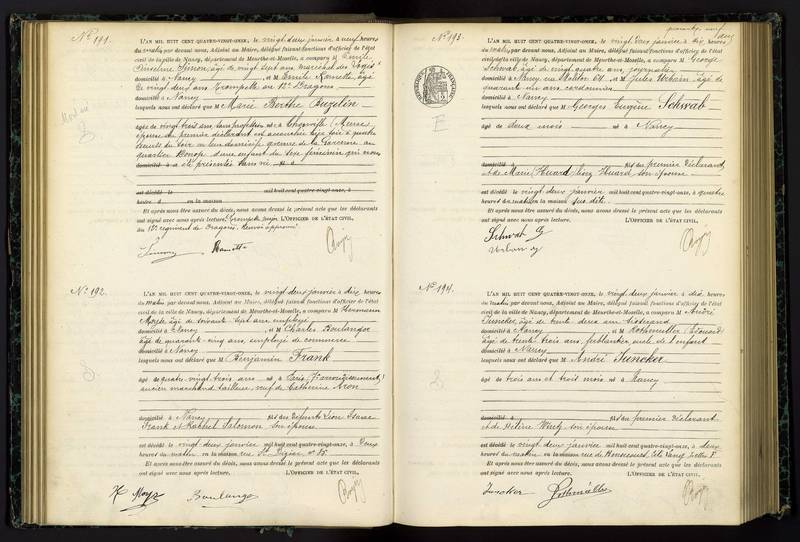 N° 191.
L'AN MIL HUIT CENT QUATRE-VINGT-ONZE, le vingt deux janvier à neuf heures
du matin par devant nous, Adjoint au Maire, délégué faisant fonctions d'officier de l'état
civil de la ville de Nancy, département de Meurthe-et-Moselle, a comparu M Emile
Simon, âgé de vingt sept ans maréchal des logis
domicilié à Nancy, et M Emile Ramette, âgé
de vingt deux ans trompette au 12e Dragons
domicilié à Nancy
lesquels nous ont déclaré que M Marie Berthe Buzelin
âgée de vingt trois ans, sans profession née à (Meuse)
épouse du premier déclarant est accouchée hier soir à quatre
heures du soir en leur domicile de la Garenne au
quartier Donop d'une enfant du sexe féminin qui nous
a été présentée sans vie
est décédé le mil huit cent quatre-vingt-onze, à
heure en la maison
Et après nous être assuré du décès, nous avons dressé le présent acte que les déclarants
ont signé avec nous après lecture. Trompette major L'OFFICIER DE L'ÉTAT CIVIL,
du 12e régiment de Dragons. Renvoi approuvé
Simon Ramette
N° 192.
L'AN MIL HUIT CENT QUATRE-VINGT-ONZE, le vingt deux janvier à dix heures
du matin par devant nous, Adjoint au Maire, délégué faisant fonctions d'officier de l'état
civil de la ville de Nancy, département de Meurthe-et-Moselle, a comparu M Hermann
âgé de soixante sept ans employé
domicilié à Nancy, et M Charles Boulanger
âgé de quarante-cinq ans, employé de commerce
domicilié à Nancy
lesquels nous ont déclaré que M Benjamin Frank
âgé de quatre vingt trois ans né à Paris (7e arrondissement)
ancien marchand tailleur, veuf de Catherine Aron
domicilié à Nancy fils des défunts Léon Isaac
Frank et Rachel Salomon son épouse
est décédé le vingt deux janvier mil huit cent quatre-vingt-onze, à deux
heures du matin en la maison rue St Dizier n° 85
Et après nous être assuré du décès, nous avons dressé le présent acte que les déclarants
ont signé avec nous après lecture. L'OFFICIER DE L'ÉTAT CIVIL,
Boulanger
N° 193.
L'AN MIL HUIT CENT QUATRE-VINGT-ONZE, le vingt deux janvier à dix heures
du matin par devant nous, Adjoint au Maire, délégué faisant fonctions d'officier de l'état
civil de la ville de Nancy, département de Meurthe-et-Moselle, a comparu M George
Schwab âgé de vingt quatre ans, journalier
domicilié à Nancy rue Molitor, et M Jules âgé de
quarante un ans cordonnier
domicilié à Nancy
lesquels nous ont déclaré que M Georges Eugène Schwab
âgé de deux mois né à Nancy
domicilié à fils du premier déclarant
et de Marie Huard son épouse
est décédé le vingt deux janvier mil huit cent quatre-vingt-onze, à quatre
heures du matin en la maison sus dite
Et après nous être assuré du décès, nous avons dressé le présent acte que les déclarants
ont signé avec nous après lecture. L'OFFICIER DE L'ÉTAT CIVIL,
Schwab G
N° 194.
L'AN MIL HUIT CENT QUATRE-VINGT-ONZE, le vingt deux janvier à dix heures
du matin par devant nous, Adjoint au Maire, délégué faisant fonctions d'officier de l'état
civil de la ville de Nancy, département de Meurthe-et-Moselle, a comparu M André
Juncker âgé de trente deux ans tisserand
domicilié à Nancy, et M Rothmuller Léonard
âgé de trente trois ans, ferblantier, oncle de l'enfant
domicilié à Nancy
lesquels nous ont déclaré que M André Juncker
âgé de trois ans et trois mois né à Nancy
domicilié à fils du premier déclarant
et de Hélène son épouse
est décédé le vingt deux janvier mil huit cent quatre-vingt-onze, à deux
heures du matin en la maison rue de
Et après nous être assuré du décès, nous avons dressé le présent acte que les déclarants
ont signé avec nous après lecture. L'OFFICIER DE L'ÉTAT CIVIL,
Juncker Rothmuller